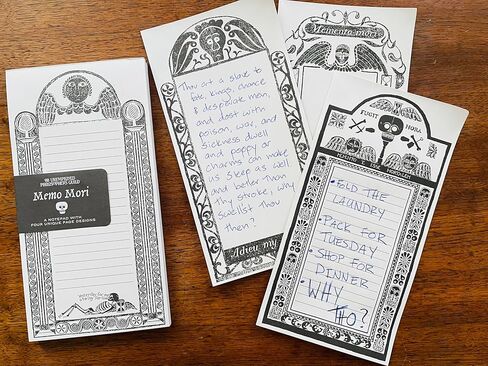 THE UNEMPLOYED
PHILOSOPHERS GUILD
Memo Mori
A NOTEPAD WITH
FOUR UNIQUE PAGE DESIGNS
Thou art a slave to
fate, kings, chance
& desperate men,
and dost with
poison, war, and
sickness dwell
and poppy or
charms can make
us sleep as well
and better than
thy stroke; why
swellst thou
then?
Adieu my
Memento mori
FUGIT HORA
•FOLD THE
LAUNDRY
•PACK FOR
TUESDAY
•SHOP FOR
DINNER
•WHY
THO?